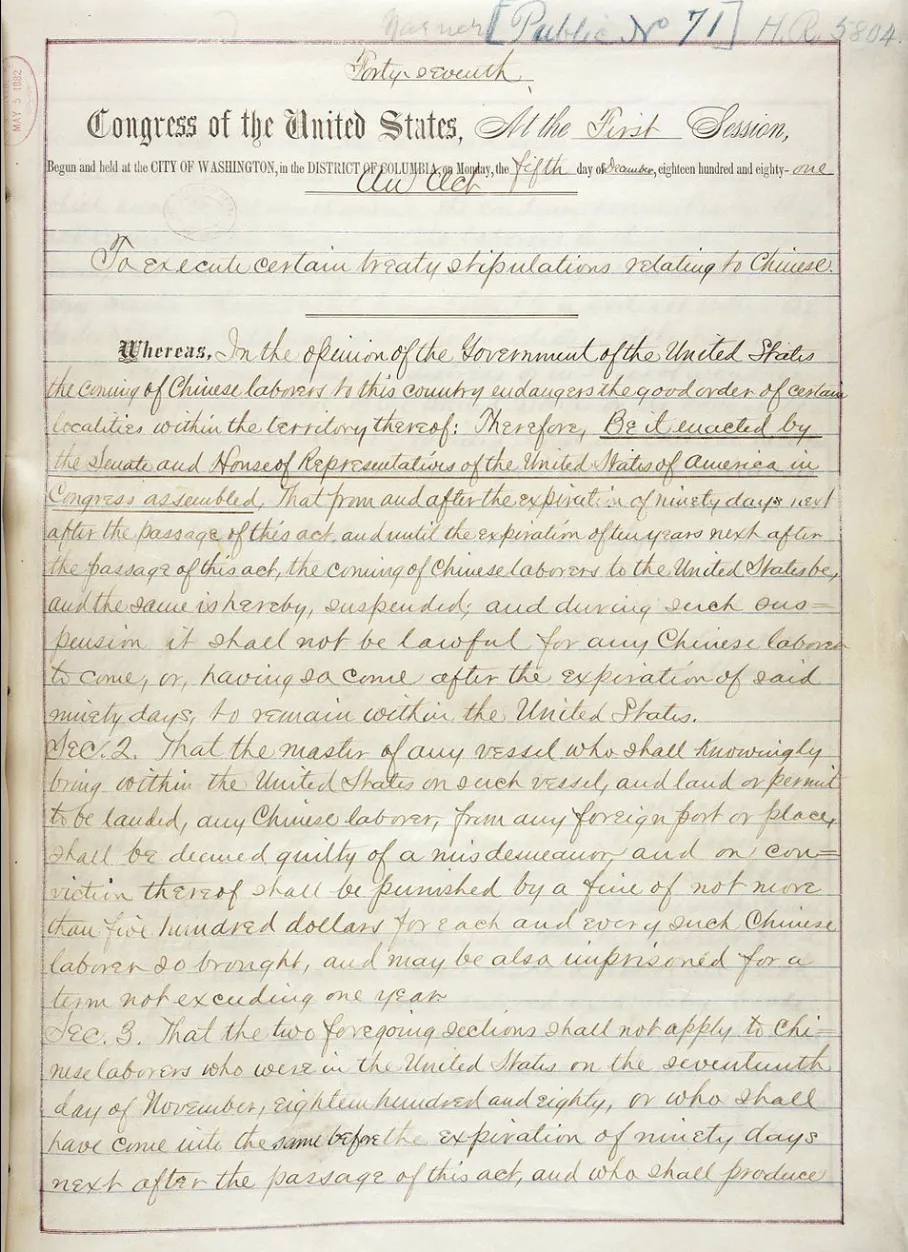 Warner [Public No 71] H.R. 5804.
MAY 5 1882
Forty-seventh
Congress of the United States, At the First Session,
Begun and held at the CITY OF WASHINGTON, in the DISTRICT OF COLUMBIA, on Monday, the fifth day of December, eighteen hundred and eighty-one
An Act
To execute certain treaty stipulations relating to Chinese.
Whereas, In the opinion of the Government of the United States
the coming of Chinese laborers to this country endangers the good order of certain
localities within the territory thereof: Therefore, Be it enacted by
the Senate and House of Representatives of the United States of America in
Congress assembled, That from and after the expiration of ninety days next
after the passage of this act, and until the expiration of ten years next after
the passage of this act, the coming of Chinese laborers to the United States be,
and the same is hereby, suspended; and during such sus=
pension it shall not be lawful for any Chinese laborer
to come, or, having so come after the expiration of said
ninety days, to remain within the United States.
Sec. 2. That the master of any vessel who shall knowingly
bring within the United States on such vessel, and land or permit
to be landed, any Chinese laborer, from any foreign port or place,
shall be deemed guilty of a misdemeanor, and on con=
viction thereof shall be punished by a fine of not more
than five hundred dollars for each and every such Chinese
laborer so brought, and may be also imprisoned for a
term not exceeding one year
Sec. 3. That the two foregoing sections shall not apply to Chi=
nese laborers who were in the United States on the seventeenth
day of November, eighteen hundred and eighty, or who shall
have come into the same before the expiration of ninety days
next after the passage of this act, and who shall produce